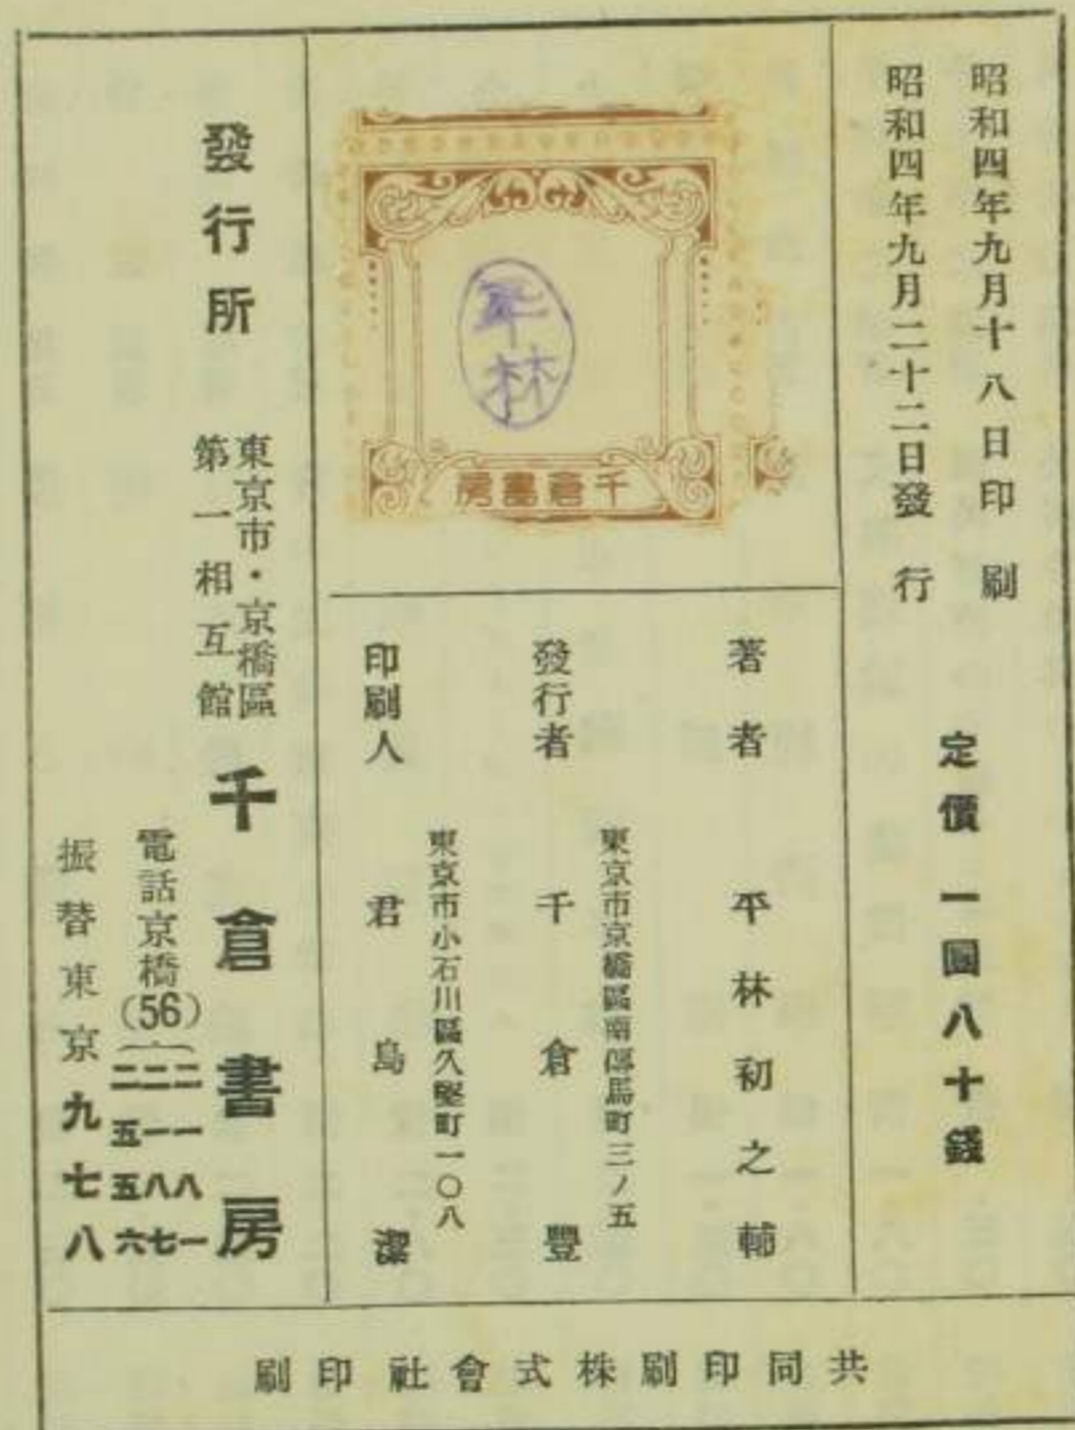 昭和四年九月十八日印刷
昭和四年九月二十二日發行
定價一圓八十錢
平林
千倉書房
著者
平林初之輔
東京市京橋區南傳馬町三ノ五
發行者
千倉豐
東京市小石川區久堅町一〇八
印刷人
君島潔
發行所
東京市・京橋區
第一相互館
千倉書房
電話京橋(56)
二一八一
二一八七
二五五六
振替東京九七八
共同印刷株式會社印刷